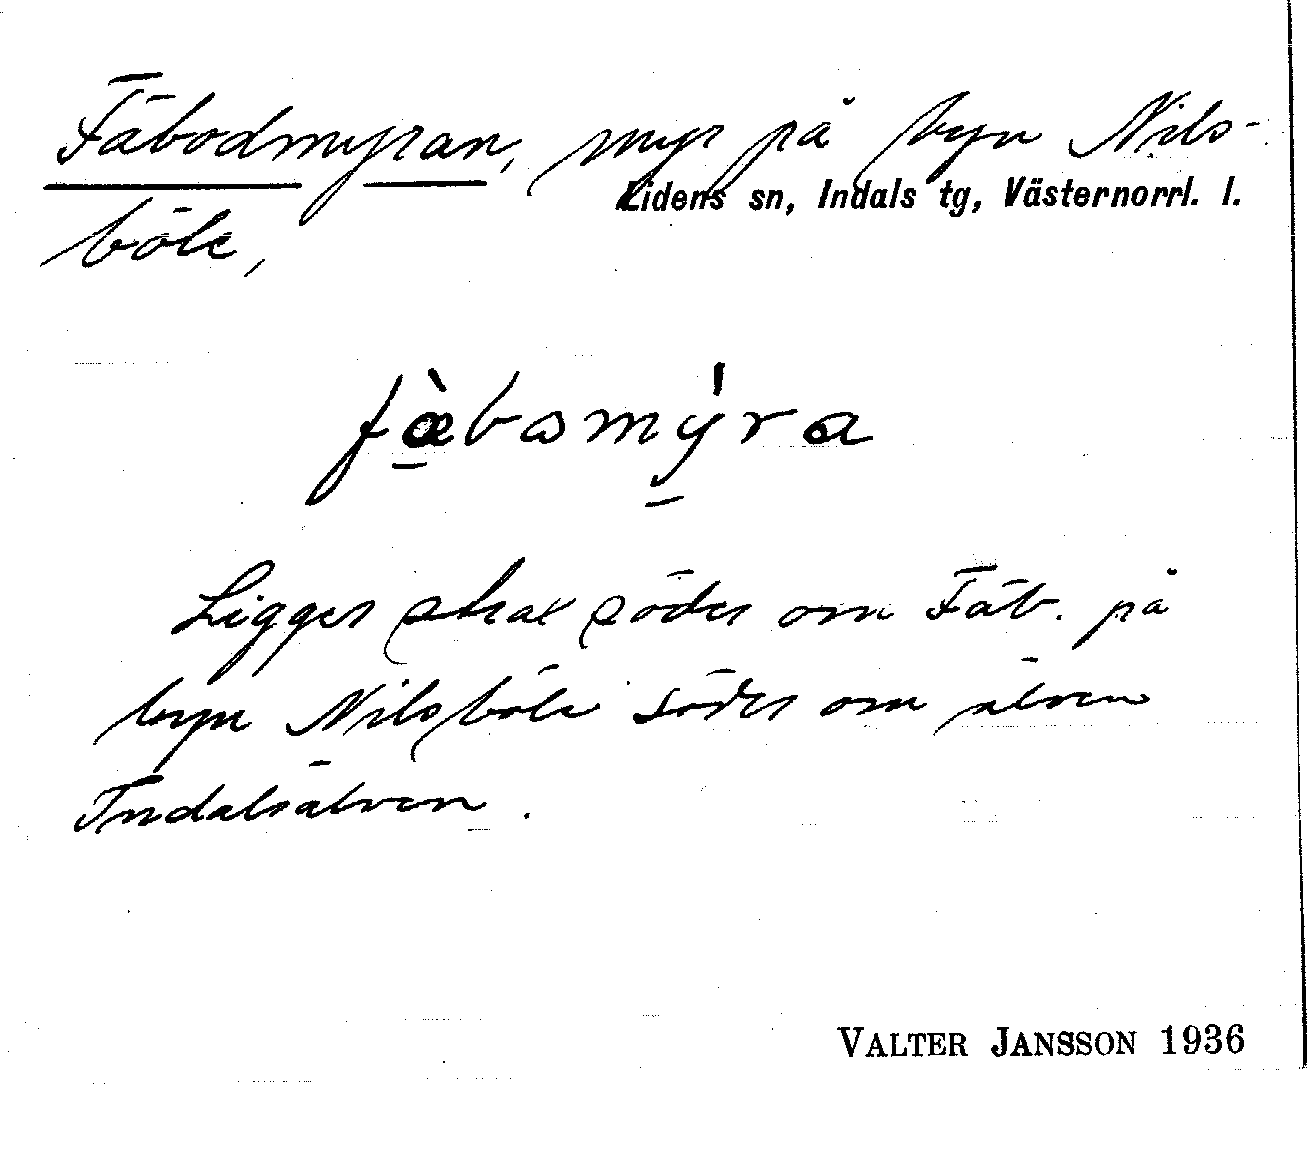 Fäbodmyran, myr på byn Nils-
Lidens sn, Indals tg, Västernorrl. l.
böle,
fæ̀bωmýra
Ligger strax söder om Fäb. på
byn Nilsböle söder om älven
Indalsälven.
VALTER JANSSON 1936